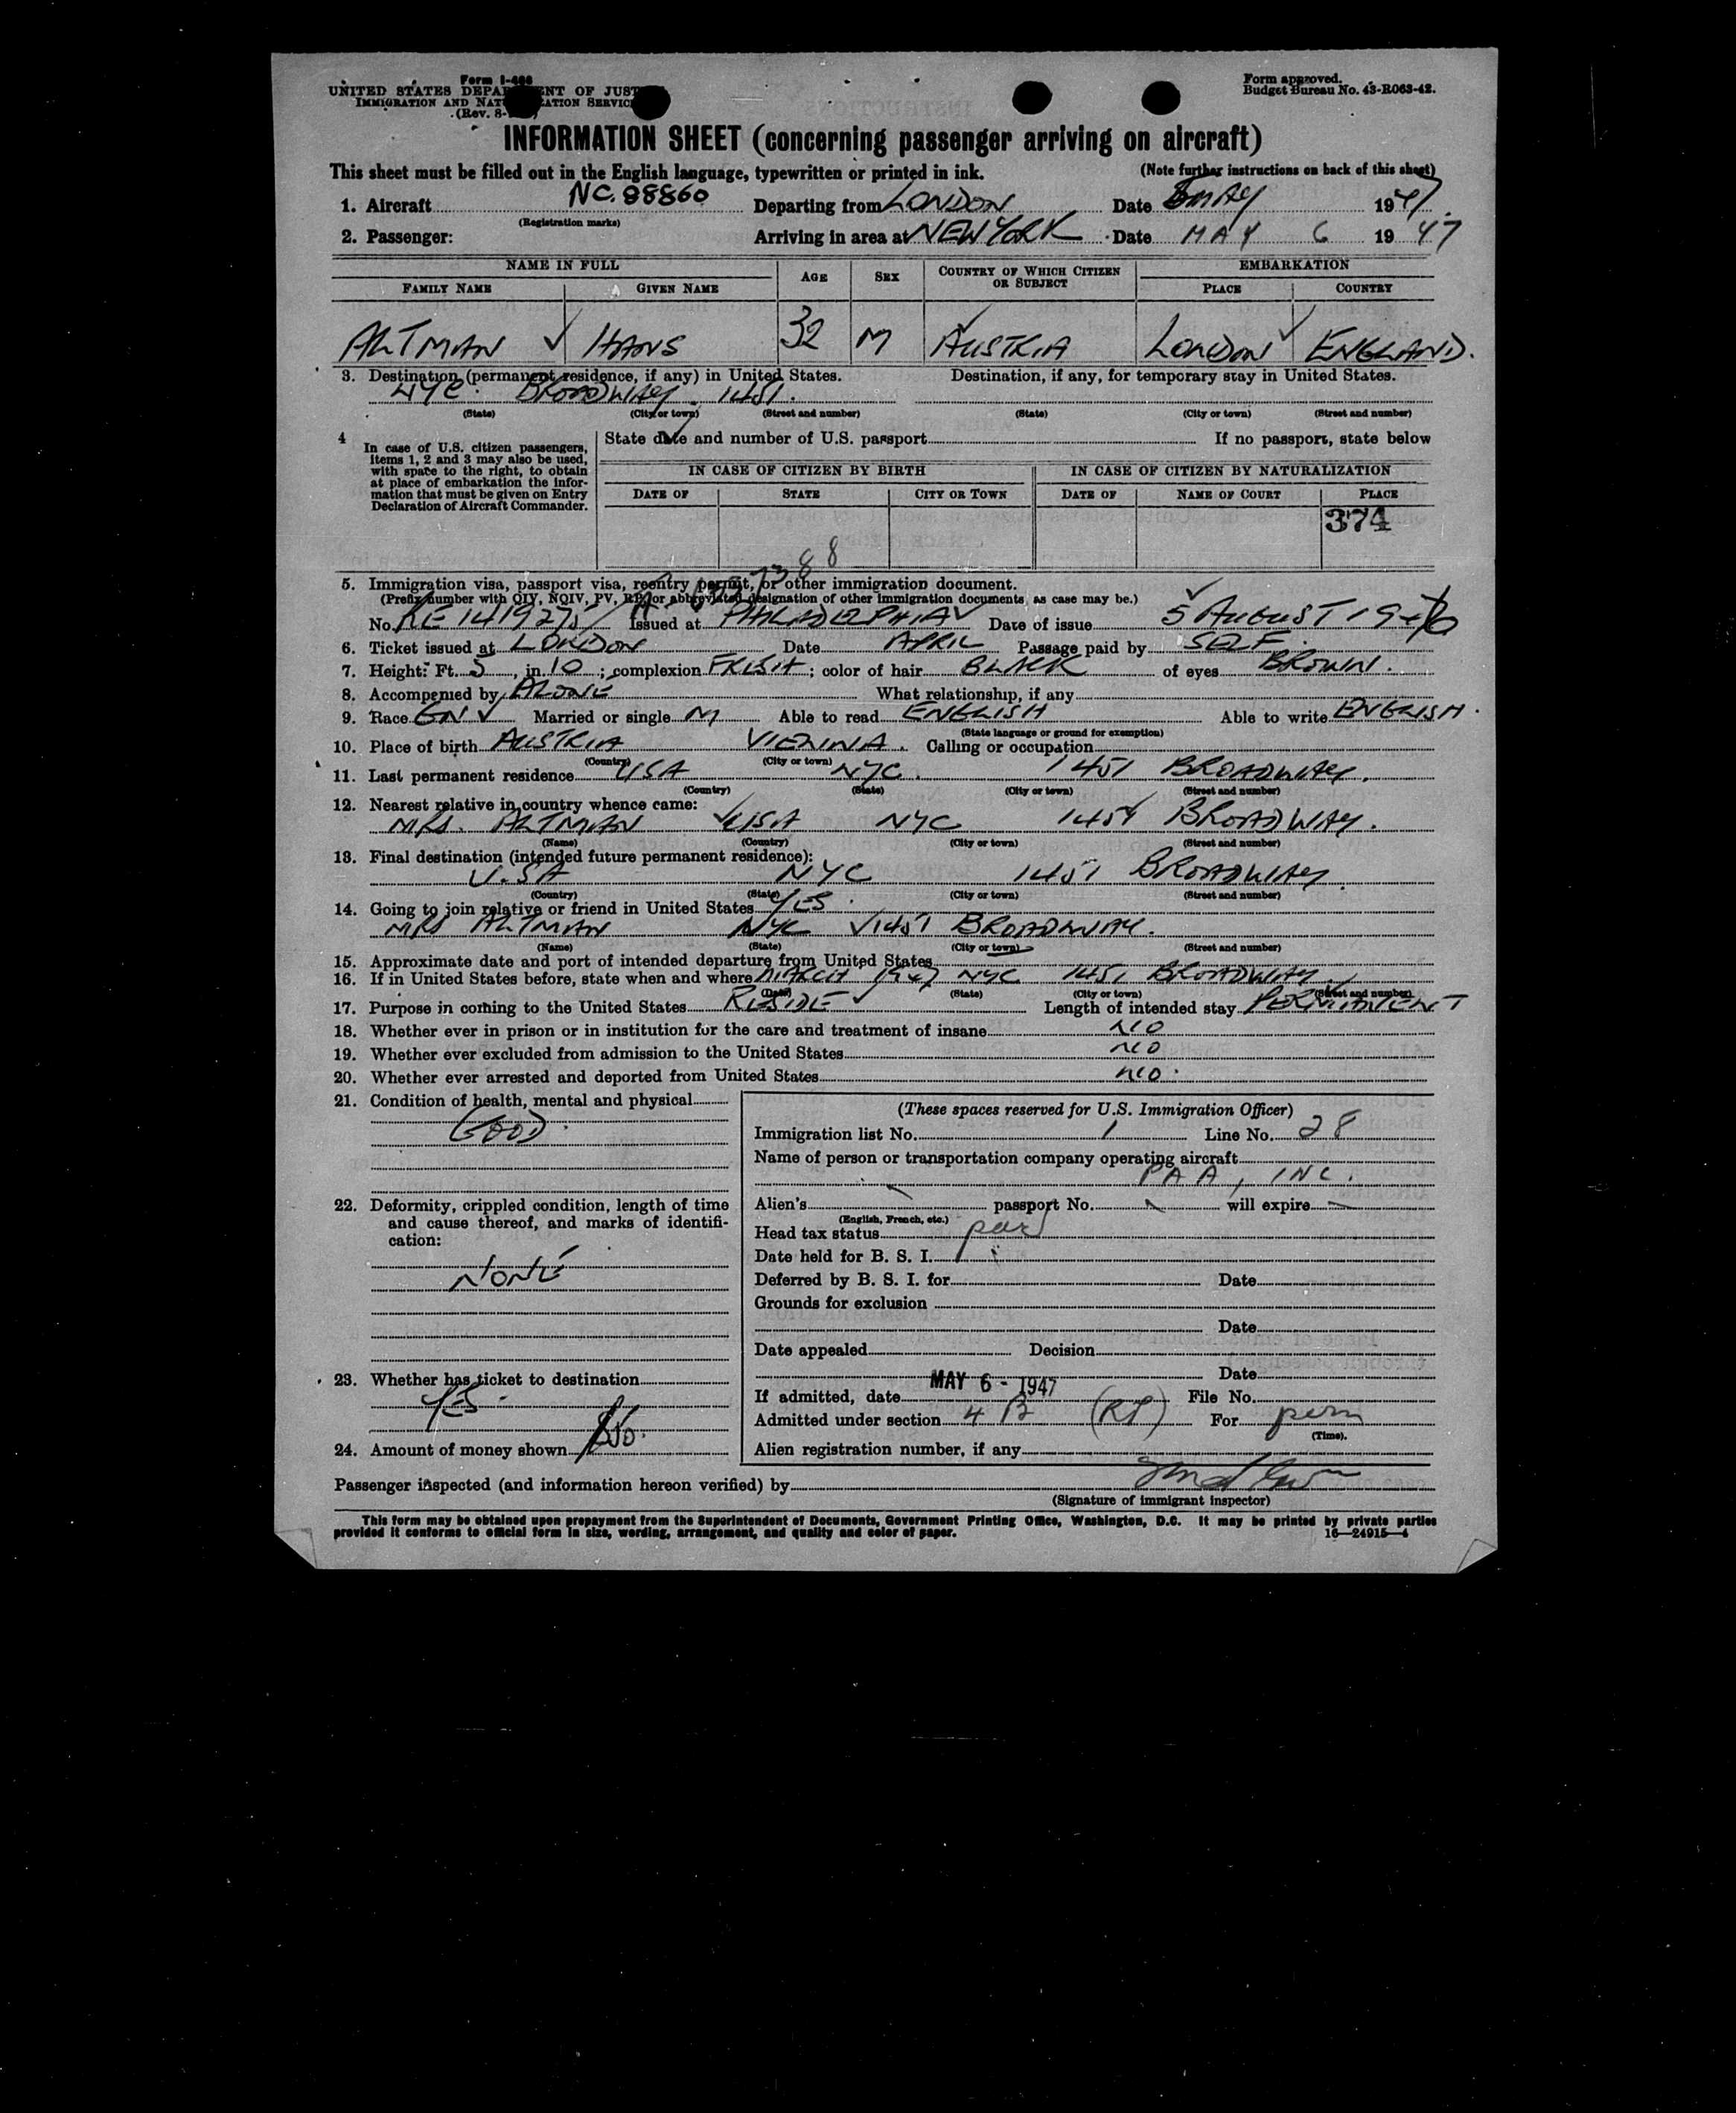 Form I-466
UNITED STATES DEPARTMENT OF JUSTICE
IMMIGRATION AND NATURALIZATION SERVICE
(Rev. 8-
Form approved.
Budget Bureau No. 43-R063-42.
INFORMATION SHEET (concerning passenger arriving on aircraft)
This sheet must be filled out in the English language, typewritten or printed in ink. (Note further instructions on back of this sheet)
1. Aircraft NC. 88860 Departing from LONDON Date 5 MAY 1947.
(Registration marks)
2. Passenger: Arriving in area at NEW YORK Date MAY 6 1947
NAME IN FULL AGE SEX COUNTRY OF WHICH CITIZEN OR SUBJECT EMBARKATION
FAMILY NAME GIVEN NAME PLACE COUNTRY
ALTMAN HANS 32 M AUSTRIA LONDON ENGLAND.
3. Destination (permanent residence, if any) in United States. Destination, if any, for temporary stay in United States.
NYC. BROADWAY. 1451.
(State) (City or town) (Street and number) (State) (City or town) (Street and number)
4 In case of U.S. citizen passengers, items 1, 2 and 3 may also be used, with space to the right, to obtain at place of embarkation the information that must be given on Entry Declaration of Aircraft Commander.
State date and number of U.S. passport If no passport, state below
IN CASE OF CITIZEN BY BIRTH IN CASE OF CITIZEN BY NATURALIZATION
DATE OF STATE CITY OR TOWN DATE OF NAME OF COURT PLACE
374
5. Immigration visa, passport visa, reentry permit, or other immigration document.
(Prefix number with QIV, NQIV, PV, RP, or abbreviated designation of other immigration documents, as case may be.)
No. RE 1419275 Issued at PHILADELPHIA Date of issue 5 AUGUST 1946
6. Ticket issued at LONDON Date APRIL Passage paid by SELF.
7. Height: Ft. 5, in. 10; complexion FRESH; color of hair BLACK of eyes BROWN.
8. Accompanied by ALONE What relationship, if any
9. Race GN Married or single M Able to read ENGLISH Able to write ENGLISH.
(State language or ground for exemption)
10. Place of birth AUSTRIA VIENNA. Calling or occupation
(Country) (City or town)
11. Last permanent residence USA NYC. 1451 BROADWAY.
(Country) (State) (City or town) (Street and number)
12. Nearest relative in country whence came:
MRS. ALTMAN USA NYC 1451 BROADWAY.
(Name) (Country) (City or town) (Street and number)
13. Final destination (intended future permanent residence):
U.SA NYC 1451 BROADWAY.
(Country) (State) (City or town) (Street and number)
14. Going to join relative or friend in United States YES.
MRS ALTMAN NYC 1451 BROADWAY.
(Name) (State) (City or town) (Street and number)
15. Approximate date and port of intended departure from United States
16. If in United States before, state when and where MARCH 1947 NYC 1451 BROADWAY
(Date) (State) (City or town) (Street and number)
17. Purpose in coming to the United States RESIDE Length of intended stay PERMANENT
18. Whether ever in prison or in institution for the care and treatment of insane NO
19. Whether ever excluded from admission to the United States NO
20. Whether ever arrested and deported from United States NO.
21. Condition of health, mental and physical
GOOD.
22. Deformity, crippled condition, length of time and cause thereof, and marks of identification:
NONE
23. Whether has ticket to destination
YES -
24. Amount of money shown
(These spaces reserved for U.S. Immigration Officer)
Immigration list No. 1 Line No. 28
Name of person or transportation company operating aircraft
PAA, INC.
Alien's passport No. will expire
(English, French, etc.)
Head tax status
Date held for B. S. I.
Deferred by B. S. I. for Date
Grounds for exclusion
Date
Date appealed Decision
Date
If admitted, date MAY 6 - 1947 File No.
Admitted under section 4 B (RP) For perm
(Time).
Alien registration number, if any
Passenger inspected (and information hereon verified) by
(Signature of immigrant inspector)
This form may be obtained upon prepayment from the Superintendent of Documents, Government Printing Office, Washington, D.C. It may be printed by private parties
provided it conforms to official form in size, wording, arrangement, and quality and color of paper. 16—24915—4